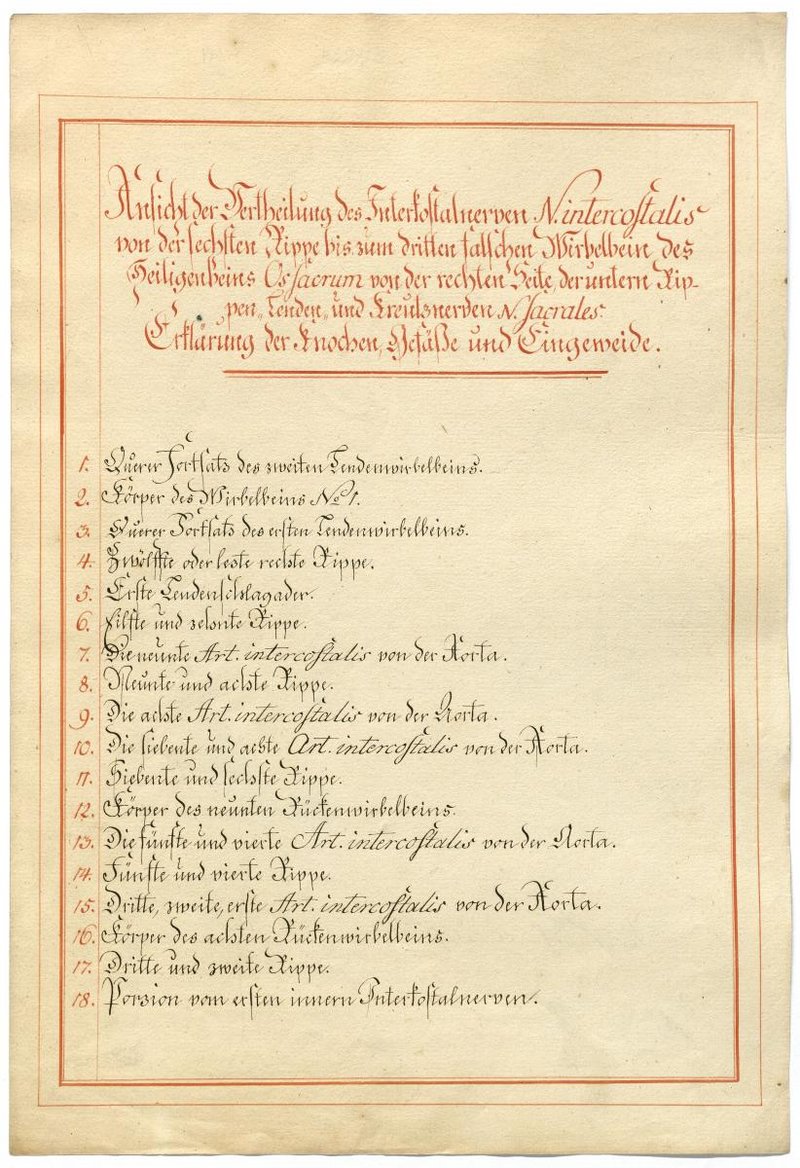 Ansicht der Vertheilung des Interkostalnerven N. intercostalis
von der sechsten Rippe bis zum dritten falschen Wirbelbein des
Heiligenbeins Os sacrum von der rechten Seite, der untern Rip-
pen„ Lenden„ und Kreutznerven N. sacrales
Erklärung der Knochen, Gefäße und Eingeweide.
1. Querer Fortsatz des zweiten Lendenwirbelbeins.
2. Körper des Wirbelbeins No 1.
3. Querer Fortsatz des ersten Lendenwirbelbeins.
4. Zwölffte oder lezte rechte Rippe.
5. Erste Lendenschlagader.
6. Eilfte und zehnte Rippe.
7. Die neunte Art. intercostalis von der Aorta.
8. Neunte und achte Rippe.
9. Die achte Art. intercostalis von der Aorta.
10. Die siebente und achte Art. intercostalis von der Aorta.
11. Siebente und sechste Rippe.
12. Körper des neunten Rückenwirbelbeins.
13. Die fünfte und vierte Art. intercostalis von der Aorta.
14. Fünfte und vierte Rippe.
15. Dritte, zweite, erste Art. intercostalis von der Aorta.
16. Körper des achten Rückenwirbelbeins.
17. Dritte und zweite Rippe.
18. Porzion vom ersten innern Interkostalnerven.